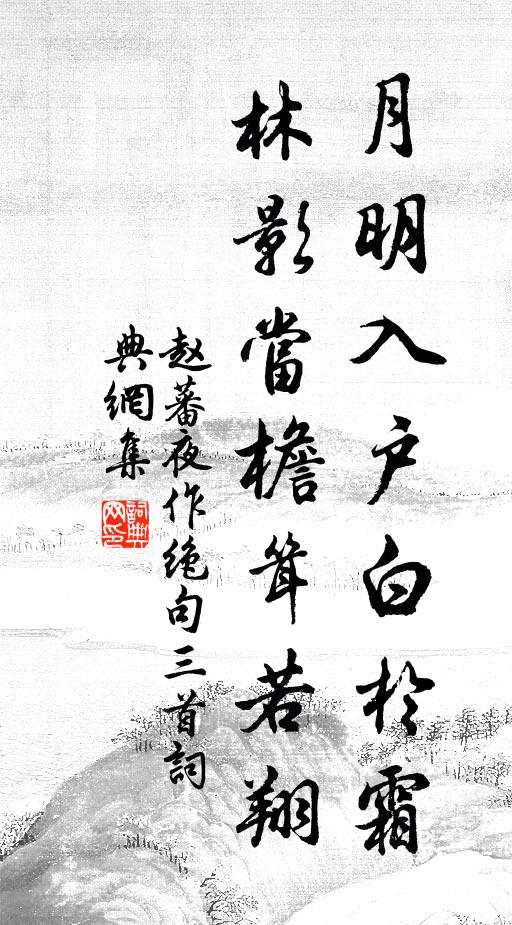 月明入户白於霜
林影當檐耸若翔
赵蕃夜作绝句三首詞
典網集
詞典
网印